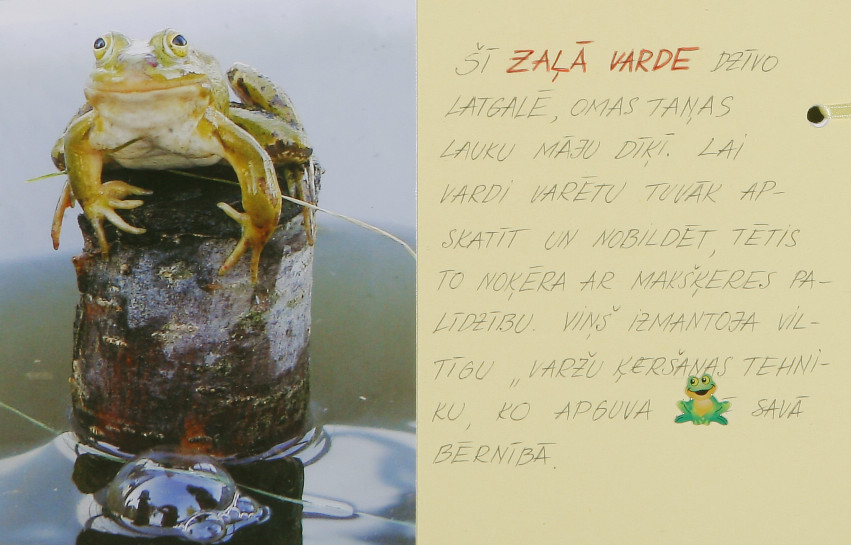 ŠĪ ZAĻĀ VARDE DZĪVO
LATGALĒ, OMAS TAŅAS
LAUKU MĀJU DĪĶĪ. LAI
VARDI VARĒTU TUVĀK AP-
SKATĪT UN NOBILDĒT, TĒTIS
TO NOĶĒRA AR MAKŠĶERES PA-
LĪDZĪBU. VIŅŠ IZMANTOJA VIL-
TĪGU „VARŽU ĶERŠANAS TEHNI-
KU, KO APGUVA SAVĀ
BĒRNĪBĀ.